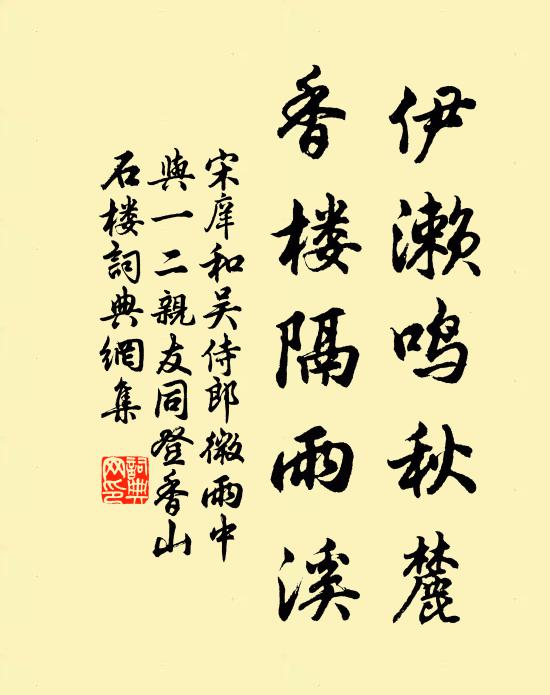 伊濑鸣秋麓
香楼隔雨溪
宋庠和吴侍郎微雨中
与一二親友同登香山
石楼詞典網集
詞典